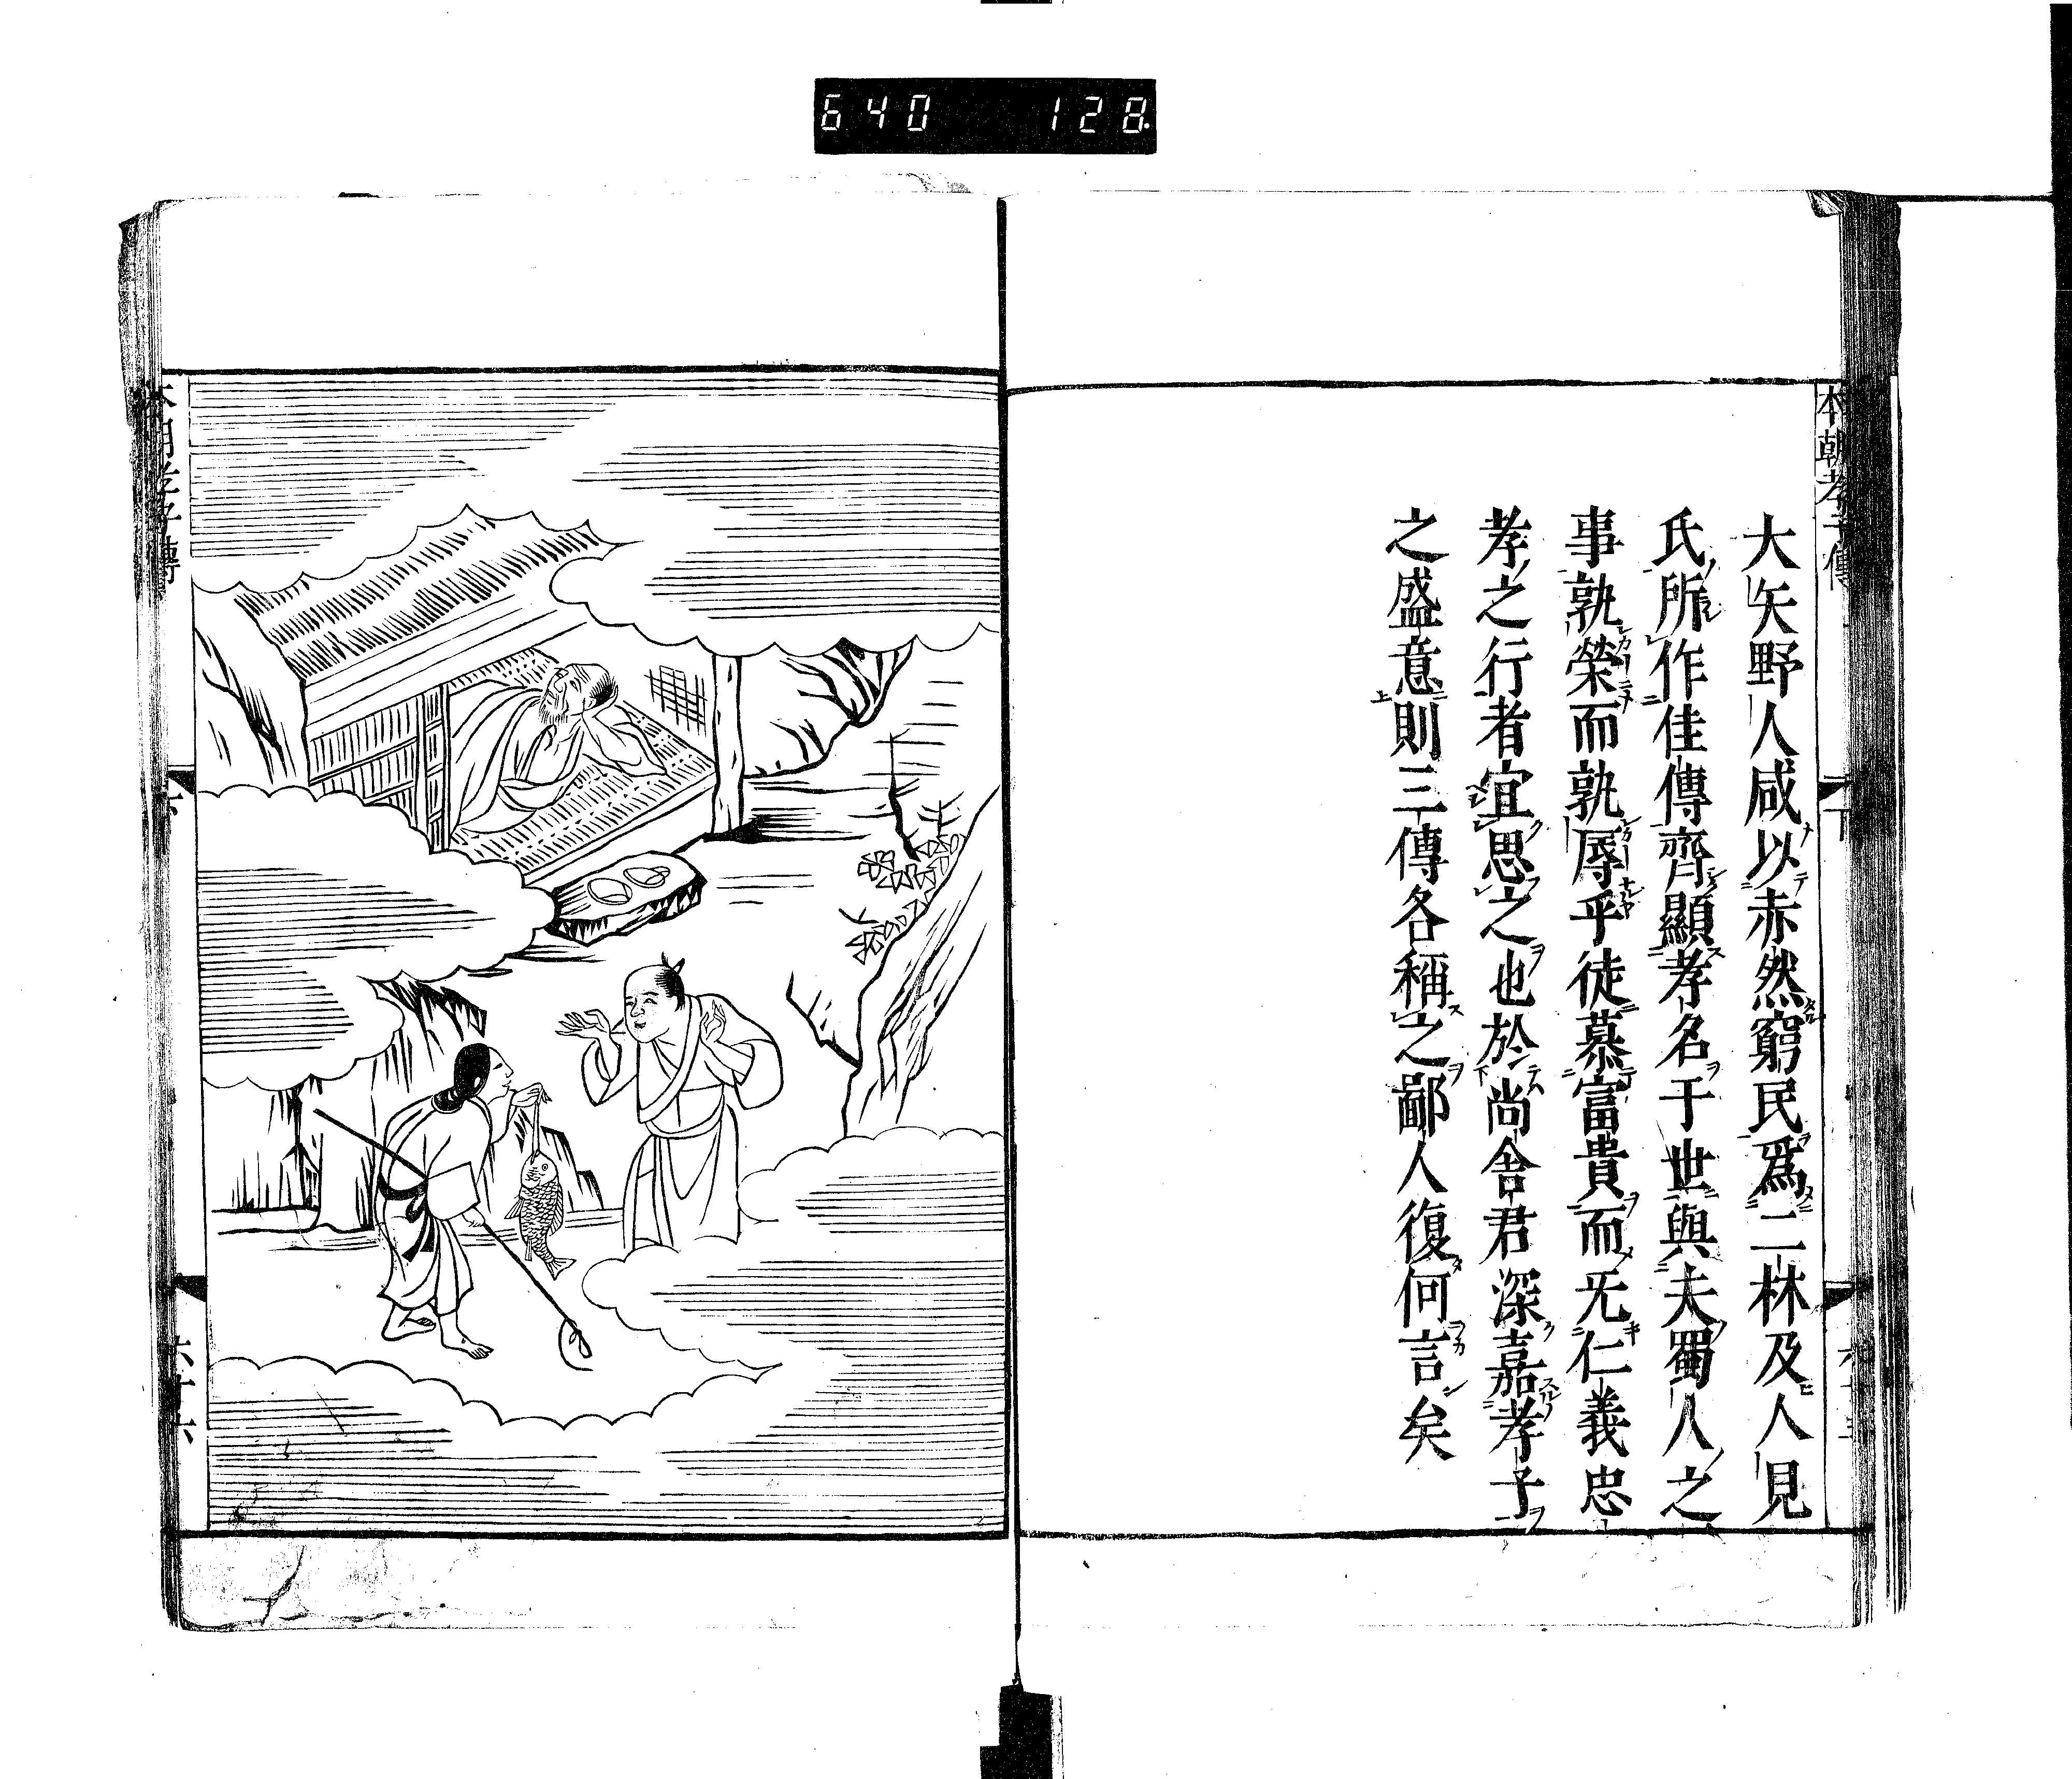 640 128.
本朝孝子傳
大矢野人咸以赤然窮民爲二林及人見
氏所作佳傳齊顯孝名于世與夫蜀人之
事孰榮而孰辱乎徒慕富貴而无仁義忠
孝之行者宜思之也於尚舍君深嘉孝子
之盛意則三傳各稱之鄙人復何言矣
本朝孝子傳
六十六